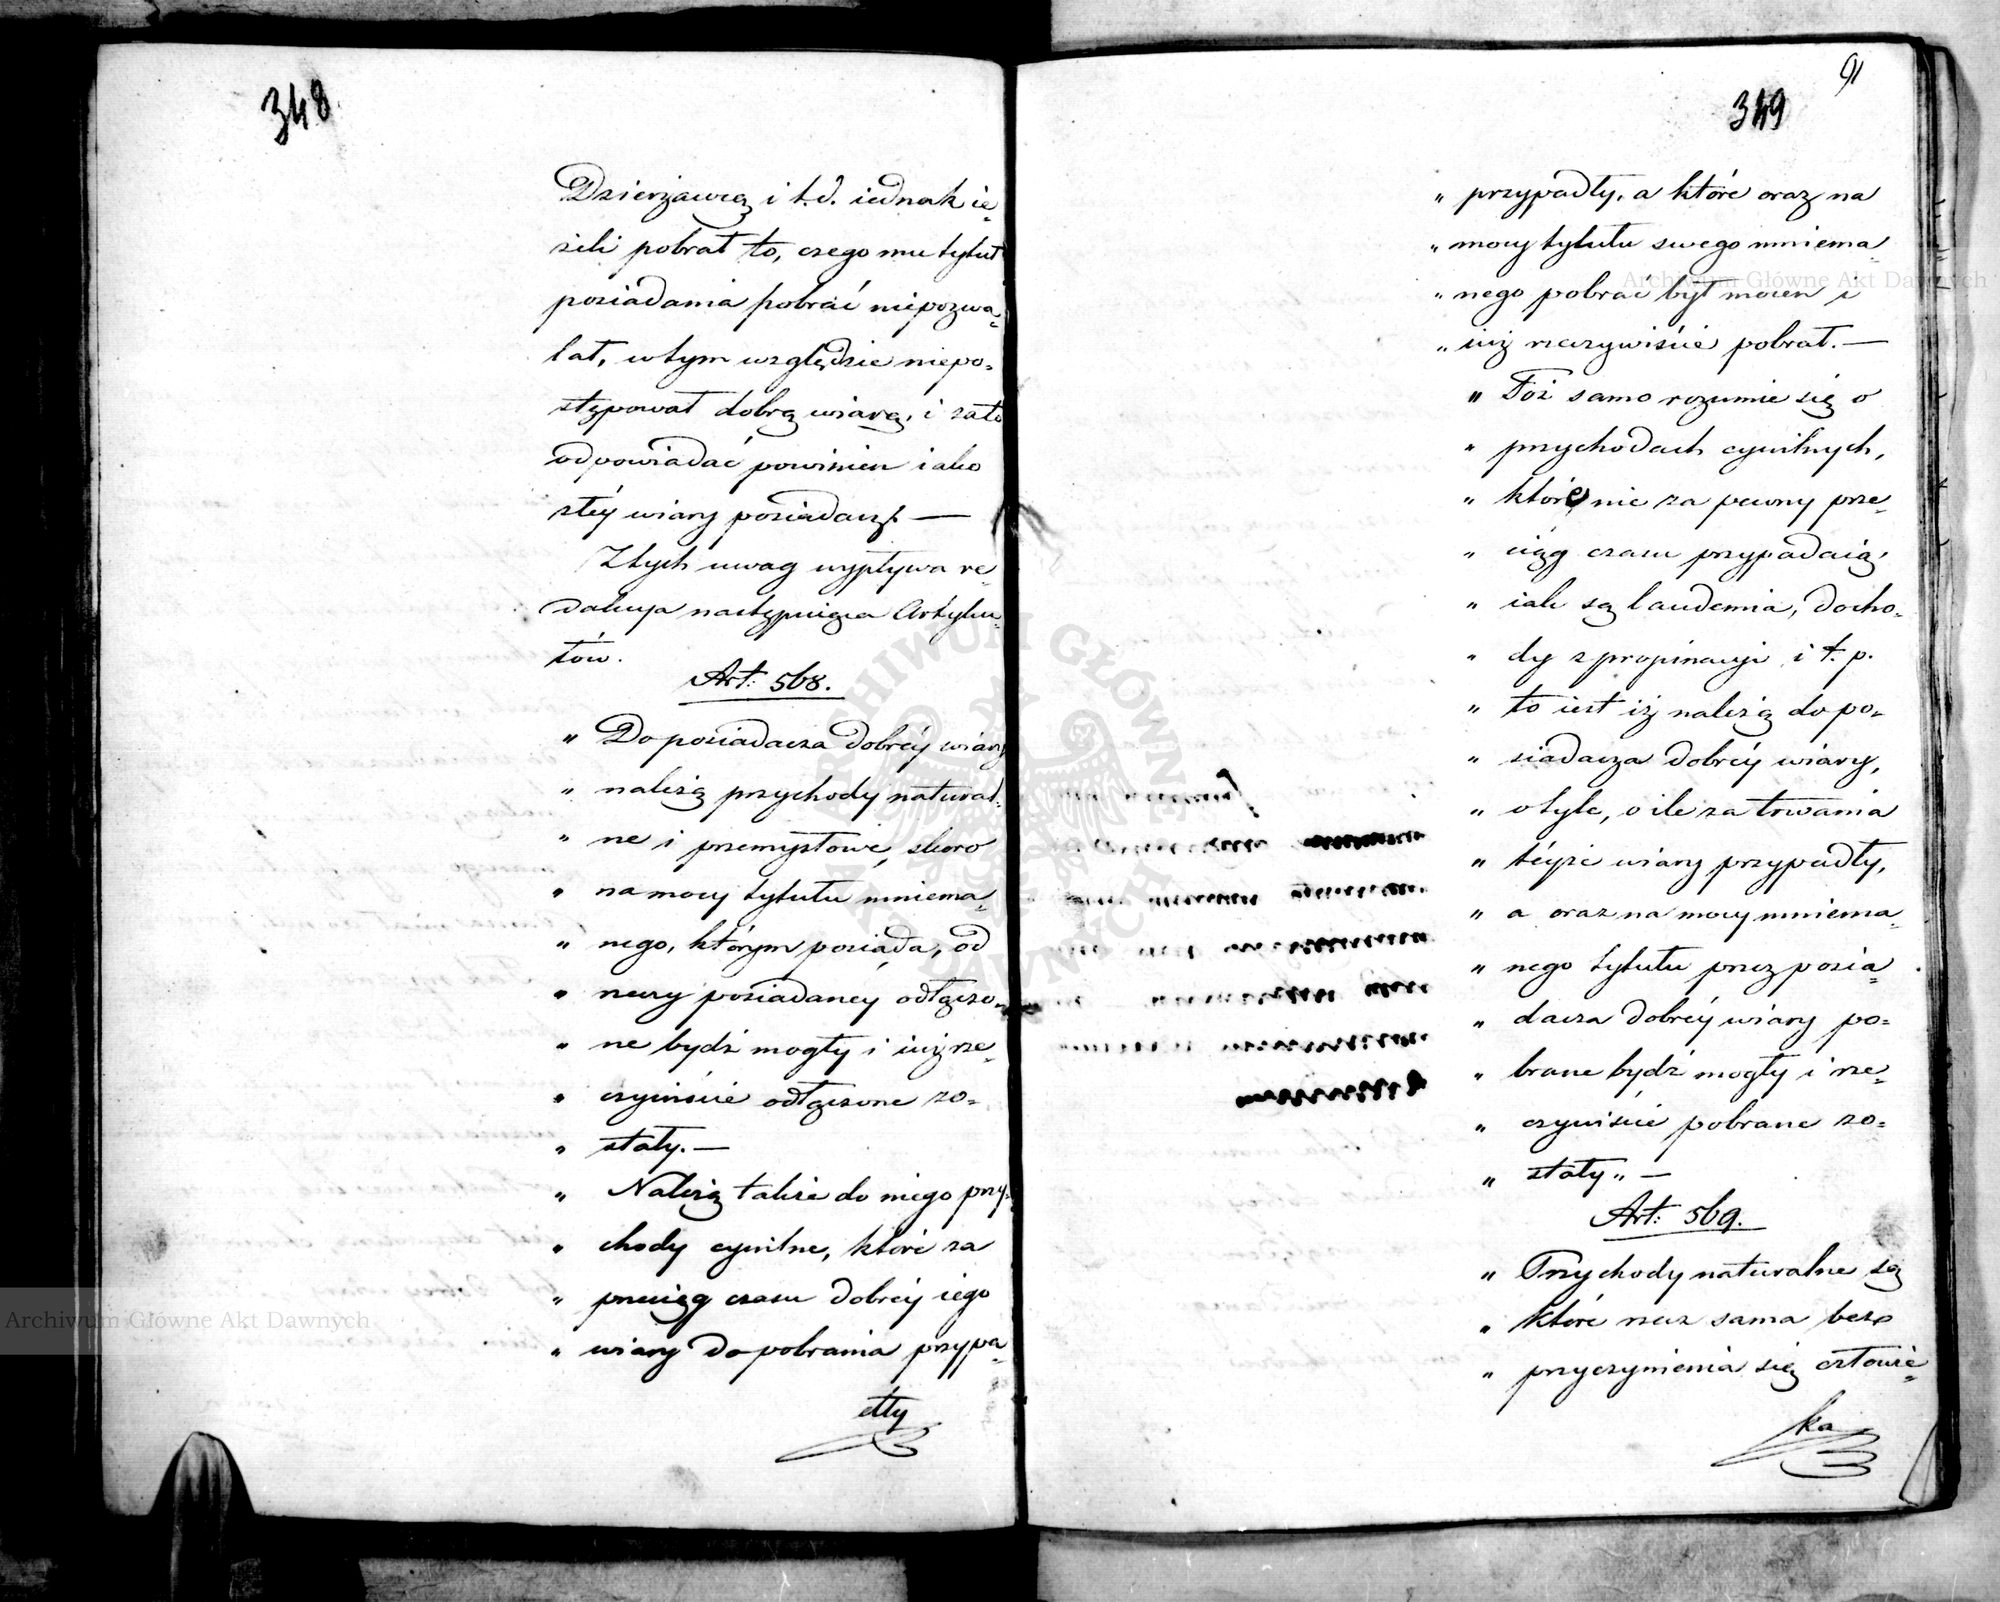 348
Dzierżawcą i t.d. iednak ie„
żeli pobrał to, czego mu tytuł
posiadania pobrać niepozwa„
lał, w tym względzie niepo„
stępował dobrą wiarą, i zato
odpowiadać powinien iako
złéy wiary posiadacz. —
Z tych uwag wypływa re„
dakcya następuiąca Artyku„
łów.
Art: 568.
„ Do posiadacza dobréy wiary
„ należą przychody natural„
„ ne i przemysłowe, skoro
„ na mocy tytułu mniema„
„ nego, którym posiada, od
„ rzeczy posiadanéy odłączo„
„ ne bydź mogły i iuż rze„
„ czywiście odłączone zo„
„ stały. —
„ Należą także do niego przy„
„ chody cywilne, które za
„ przeciąg czasu dobréy iego
„ wiary do pobrania przypa„
dły
91
349
„ przypadły, a które oraz na
„ mocy tytułu swego mniema„
„ nego pobrać był mocen i
„ iuż rzeczywiście pobrał. —
„ Toż samo rozumie się o
„ przychodach cywilnych,
„ które nie za pewny prze„
„ ciąg czasu przypadaią,
„ iak są laudemia, docho„
„ dy z propinacyi i t. p.
„ to iest iż należą do po„
„ siadacza dobréy wiary,
„ o tyle, o ile za trwania
„ téyże wiary przypadły,
„ a oraz na mocy mniema„
„ nego tytułu przez posia„
„ dacza dobréy wiary po„
„ brane bydź mogły i rze„
„ czywiście pobrane zo„
„ stały „ —
Art: 569.
„ Przychody naturalne są
„ które rzecz sama bez
„ przyczynienia się człowie„
ka
ARCHIWUM GŁÓWNE AKT DAWNYCH
Archiwum Główne Akt Dawnych
Archiwum Główne Akt Dawnych